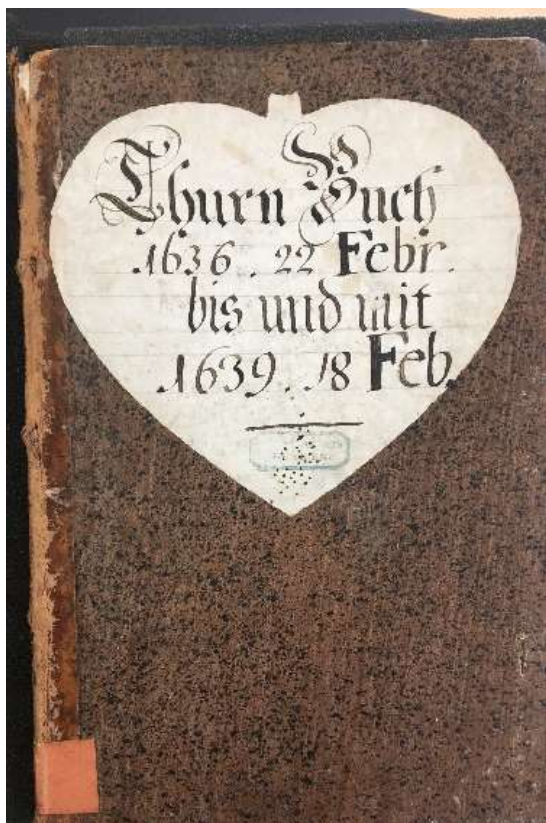 Thurn Buch
1636. 22 Febr.
bis und mit
1639. 18 Feb.